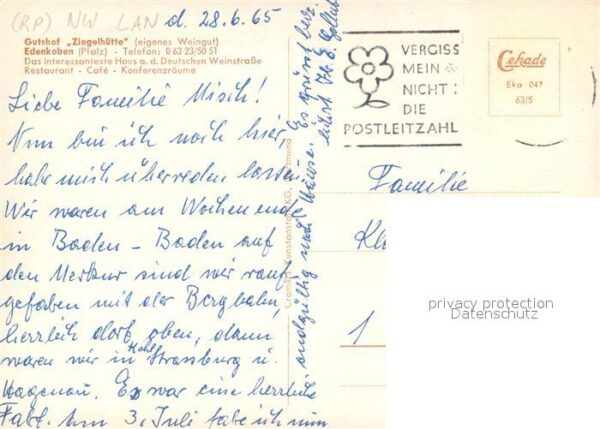 (RP) NW LAN
d. 28.6.65
Gutshof „Ziegelhütte" (eigenes Weingut)
Edenkoben (Pfalz) - Telefon: 0 63 23/50 51
Das interessanteste Haus a. d. Deutschen Weinstraße
Restaurant - Café - Konferenzräume
Liebe Familie Misch!
Nun bin ich noch hier,
habe mich überreden lassen.
Wir waren am Wochenende
in Baden-Baden auf
den Merkur sind wir rauf
gefahren mit der Bergbahn,
herrlich dort oben, dann
waren wir in Kehl Strassburg u.
Hagenau. Es war eine herrliche
Fahrt. Am 3. Juli fahre ich nun
endgültig nach Hause. Es grüsst herz-
lichst
Cramers Kunstanstalt KG, Dortmund
VERGISS
MEIN
NICHT:
DIE
POSTLEITZAHL
Cekade
Eka 047
63/5
Familie
Kl
1
privacy protection
Datenschutz